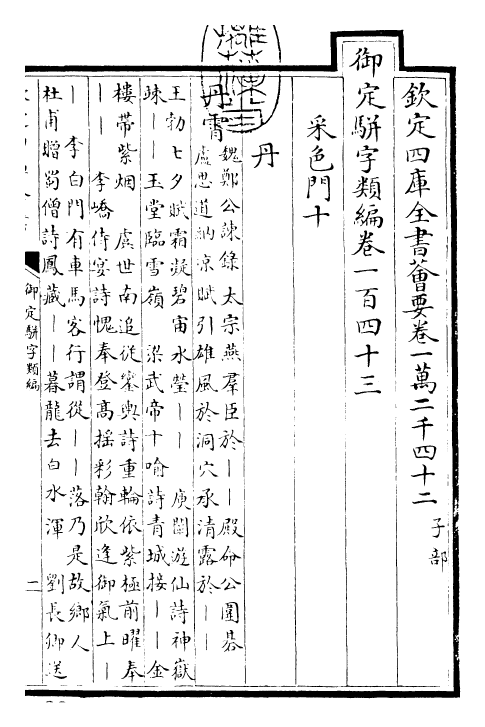 欽定四庫全書薈要卷一萬二千四十二 子部
御定駢字類編卷一百四十三
采色門十
丹
丹霄 魏鄭公諫錄太宗燕羣臣於｜｜殿命公圍碁
盧思道納涼賦引雄風於洞穴承清露於｜｜
王勃七夕賦霜凝碧宙水瑩｜｜ 庾闡遊仙詩神嶽
竦｜｜玉堂臨雪嶺 梁武帝十喻詩青城接｜｜金
樓帶紫烟 虞世南追從鑾輿詩重輪依紫極前曜奉
｜｜ 李嶠侍宴詩愧奉登高搖彩翰欣逢御氣上｜
｜ 李白門有車馬客行謂從｜｜落乃是故鄉人
杜甫贈蜀僧詩鳳藏｜｜暮龍去白水渾 劉長卿送
御定駢字類編
二